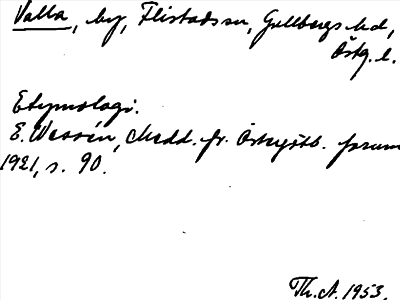 Valla, by, Flistads sn, Gullbergs hd,
Östg. l.
Etymologi.
E. Wessén, Medd. fr. Östergötl. fornm
1921, s. 90.
Th. A. 1953.